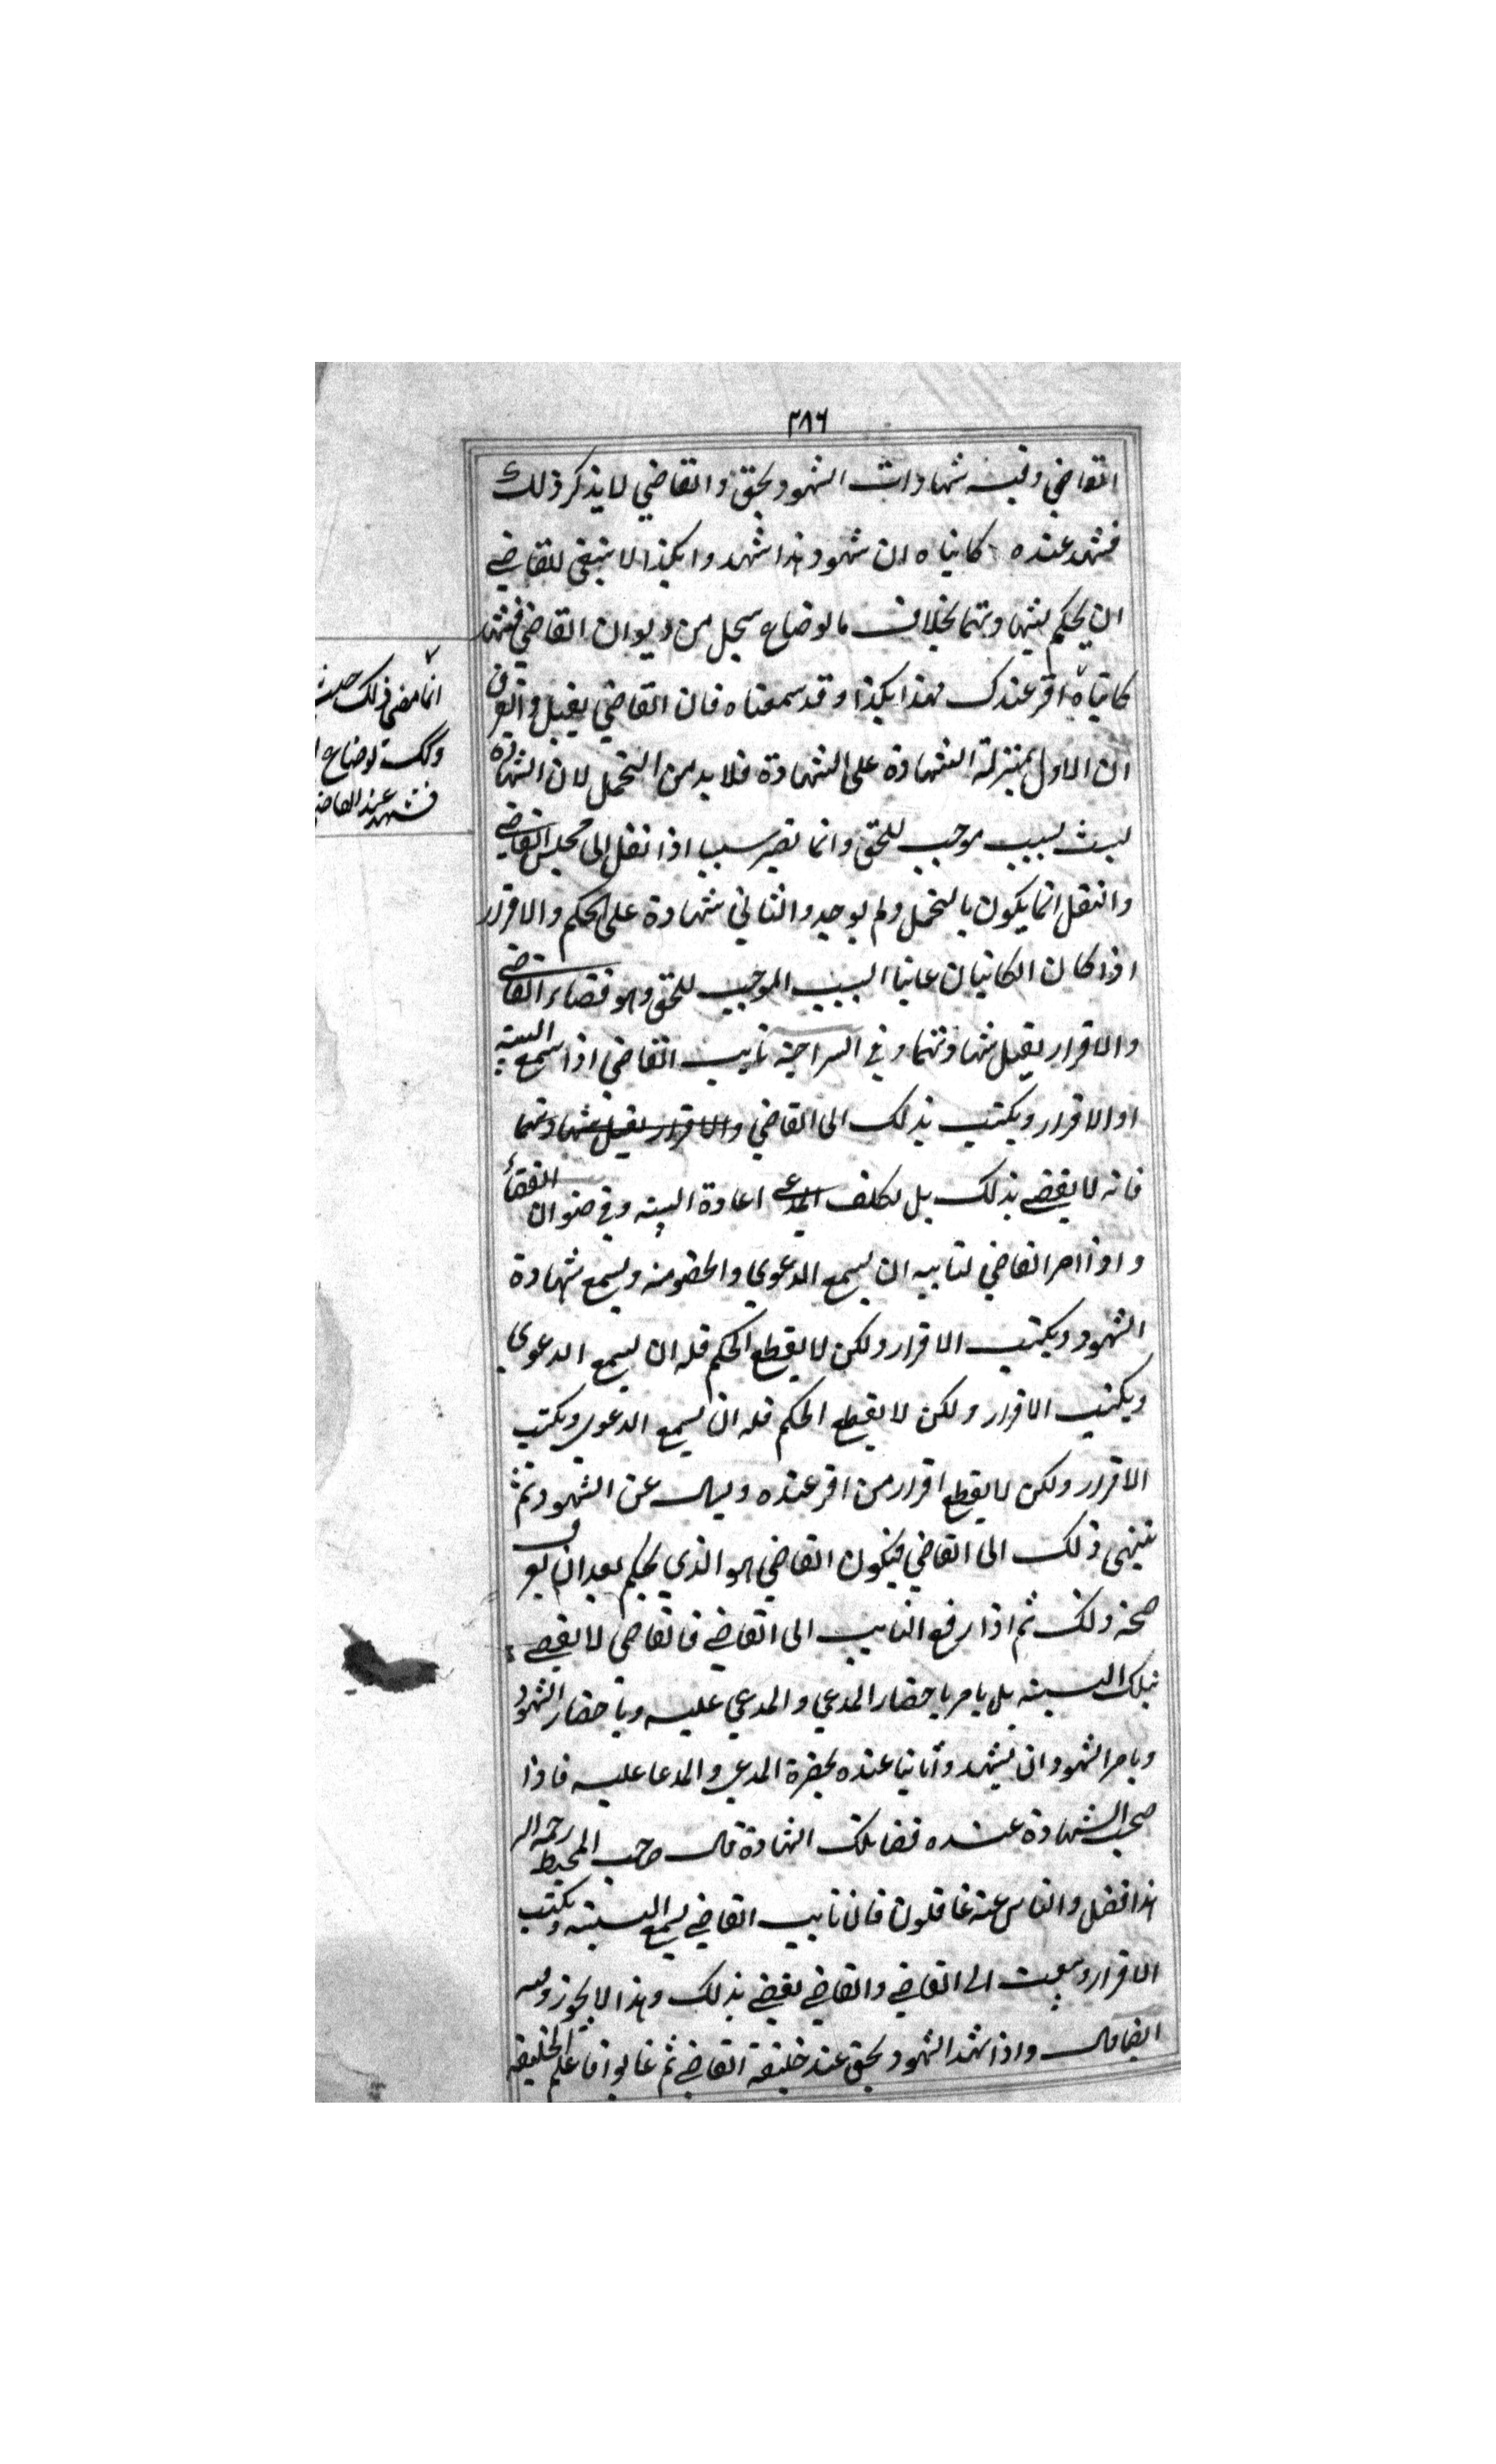 ٢٨٦
القاضي وفيه شهادات الشهود بحق والقاضي لا يذكر ذلك
فشهد عنده كاتباه ان شهود هذا شهدوا بكذا لا ينبغي للقاضي
ان يحكم بشهادتهما بخلاف ما لو ضاع سجل من ديوان القاضي فشهد
كاتباه اقر عندك بهذا بكذا وقد سمعناه فان القاضي يقبل والفرق
ان الاول بمنزلة الشهادة على الشهادة فلا بد من التحمل لان الشهادة
ليست بسبب موجب للحق وانما تصير سببا اذا نقل الى مجلس القاضي
والنقل انما يكون بالتحمل ولم يوجد والثاني شهادة على الحكم والاقرار
اذا كان الكاتبان عاينا السبب الموجب للحق وهو قضاء القاضي
والاقرار يقبل شهادتهما وفي السراجية نايب القاضي اذا سمع البينة
او الاقرار ويكتب بذلك الى القاضي والاقرار يقبل شهادتهما
فانه لا يقضي بذلك بل يكلف المدعي اعادة البينه وفي صنوان القضاء
واذا امر القاضي لنايبه ان يسمع الدعوي والخصومه ويسمع شهادة
الشهود ويكتب الاقرار ولكن لا يقطع الحكم فله ان يسمع الدعوي
ويكتب الاقرار ولكن لا يقطع الحكم فله ان يسمع الدعوى ويكتب
الاقرار ولكن لا يقطع اقرار من اقر عنده ويسال عن الشهود ثم
ينهى ذلك الى القاضي فيكون القاضي هو الذي يحكم بعد ان يعرف
صحة ذلك ثم اذا رفع النايب الى القاضي فالقاضي لا يقضي
بتلك البينه بل يامر باحضار المدعي والمدعي عليه وباحضار الشهود
ويامر الشهود ان يشهدوا ثانيا عنده بحضرة المدعى والمدعا عليه فاذا
صحت الشهادة عنده قضا بتلك الشهادة قال صاحب المحيط رحمه الله
هذا فضل والناس عنه غافلون فان نايب القاضي يسمع البينه ويكتب
الاقرار ويبعث الى القاضي والقاضي يقضي بذلك وهذا لا يجوز وفيه
ايضا قال واذا شهد الشهود بحق عند خليفة القاضي ثم غابوا فاعلم الخليفه
انما مضى ذلك
ولك لو ضاع
فشهد عند القاضي